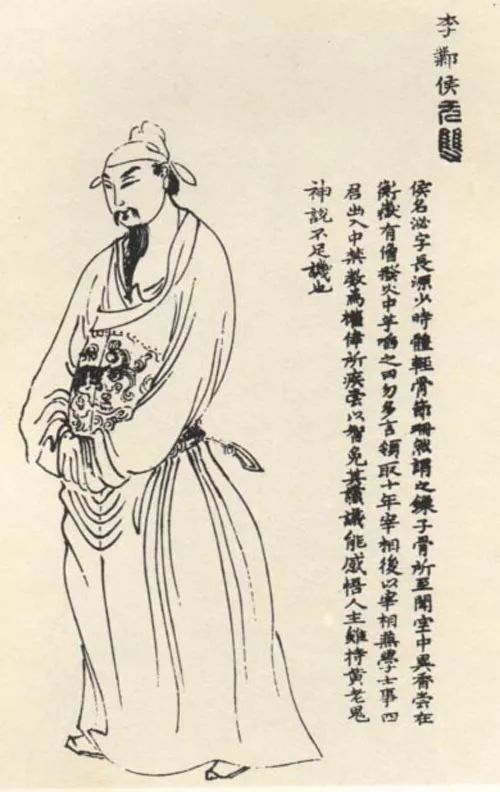 李鄴侯
侯名泌字長源少時體輕骨節珊然謂之鏁子骨所至聞空中異香嘗在
衡嶽有僧撥火中芋啗之曰勿多言領取十年宰相後以宰相兼學士事四
君出入中禁數為權倖所疾嘗以智免其讜議能感悟人主雖持黃老鬼
神說不足譏也